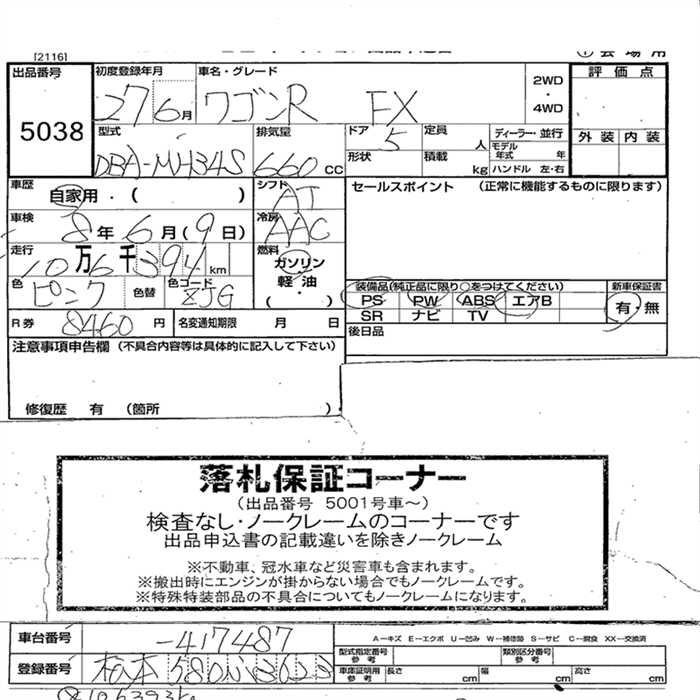 [2116]
会場用
出品番号 初度登録年月 車名・グレード 2WD・4WD 評価点
5038 27 6月 ワゴンR FX
型式 排気量 ドア 定員 ディーラー・並行 外装 内装
DBA-MH34S 660cc 5 人 モデル年式 年
形状 積載 kg ハンドル 左・右
車歴 自家用・( ) シフト AT セールスポイント (正常に機能するものに限ります)
車検 8年6月(9日) 冷房 AAC
走行 10万6千394km 燃料 ガソリン 軽油 ( )
色 ピンク 色替 色コード ZJG 装備品(純正品に限り○をつけてください) 新車保証書
PS PW ABS エアB 有・無
SR ナビ TV
R券 8460円 名変通知期限 月 日 後日品
注意事項申告欄 (不具合内容等は具体的に記入して下さい)
修復歴 有 (箇所 )
落札保証コーナー
(出品番号 5001号車〜)
検査なし・ノークレームのコーナーです
出品申込書の記載違いを除きノークレーム
※不動車、冠水車など災害車も含まれます。
※搬出時にエンジンが掛からない場合でもノークレームです。
※特殊特装部品の不具合についてもノークレームになります。
車台番号 -417487 A-キズ E-エクボ U-凹み W-補修跡 S-サビ C-腐食 XX-交換済
型式指定番号 参考 類別区分番号 参考
登録番号 580 車庫証明用 参考 長さ cm 幅 cm 高さ cm